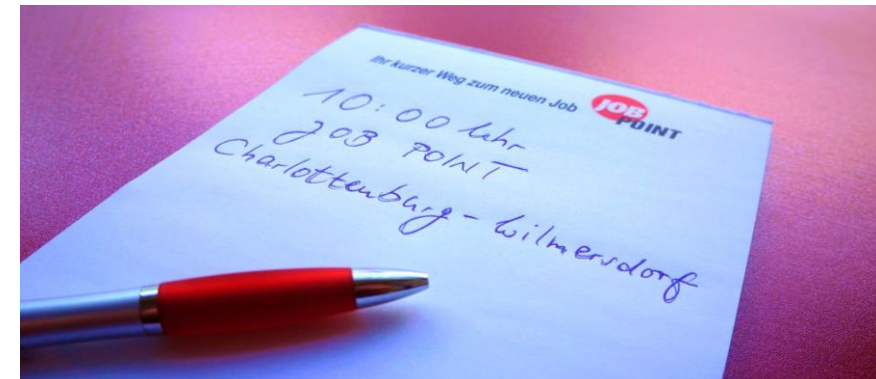 Ihr kurzer Weg zum neuen Job
JOB
POINT
10:00 Uhr
JOB POINT
Charlottenburg-Wilmersdorf